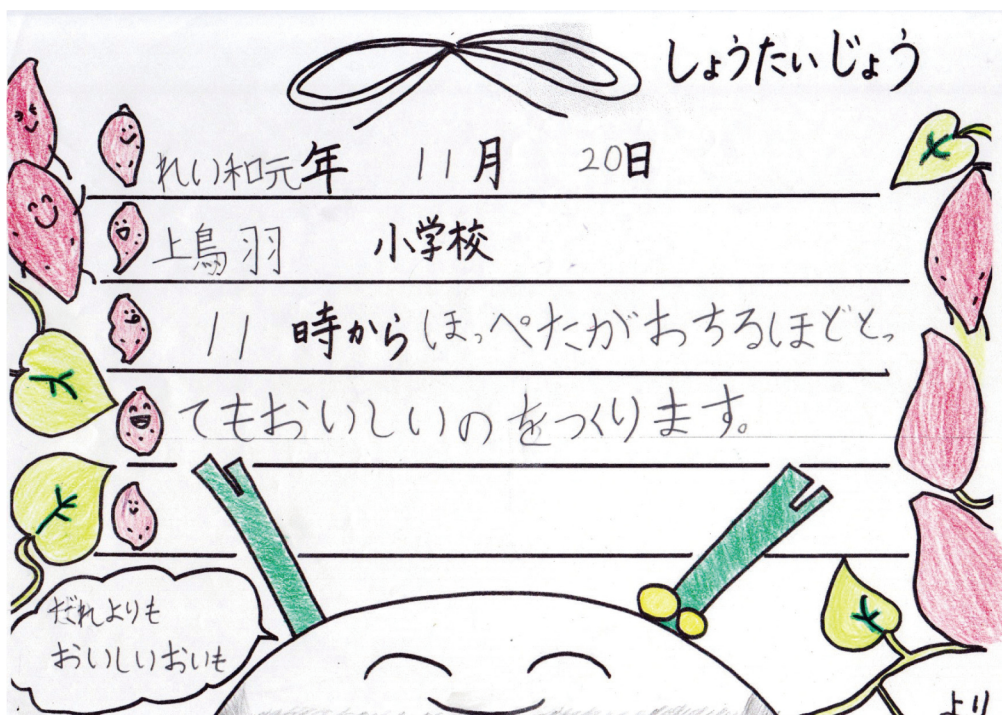 しょうたいじょう
れい和元年 11月 20日
上鳥羽 小学校
11 時から ほっぺたがおちるほどとっ
てもおいしいのをつくります。
だれよりも
おいしいおいも
より